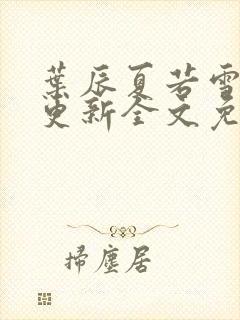 葉辰夏若雪
更新全文免
掃塵居